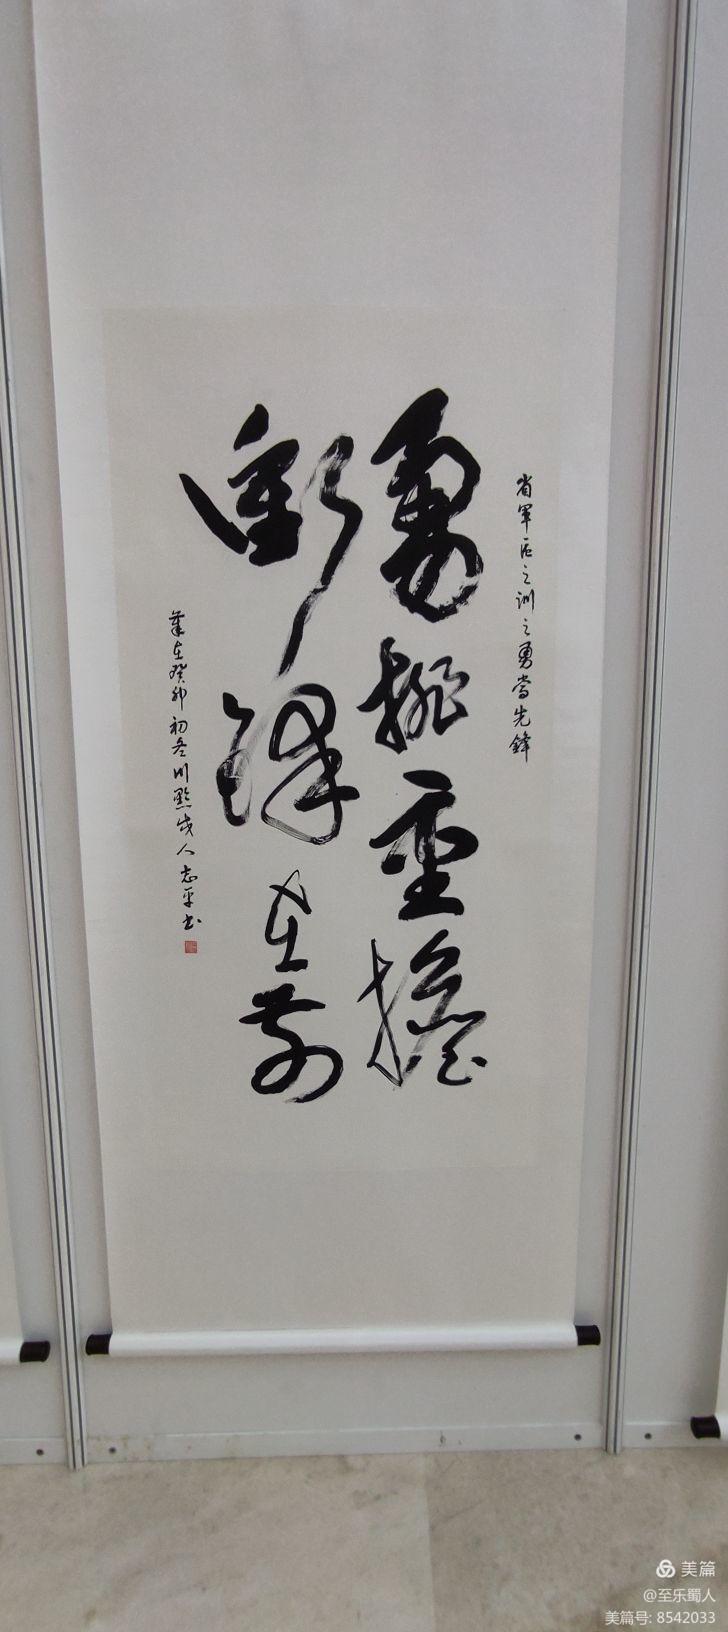 省军区之训之勇当先锋
勇挑重担
冲锋在前
岁在癸卯初冬川黔戎人志平书
美篇
@至乐蜀人
美篇号: 8542033